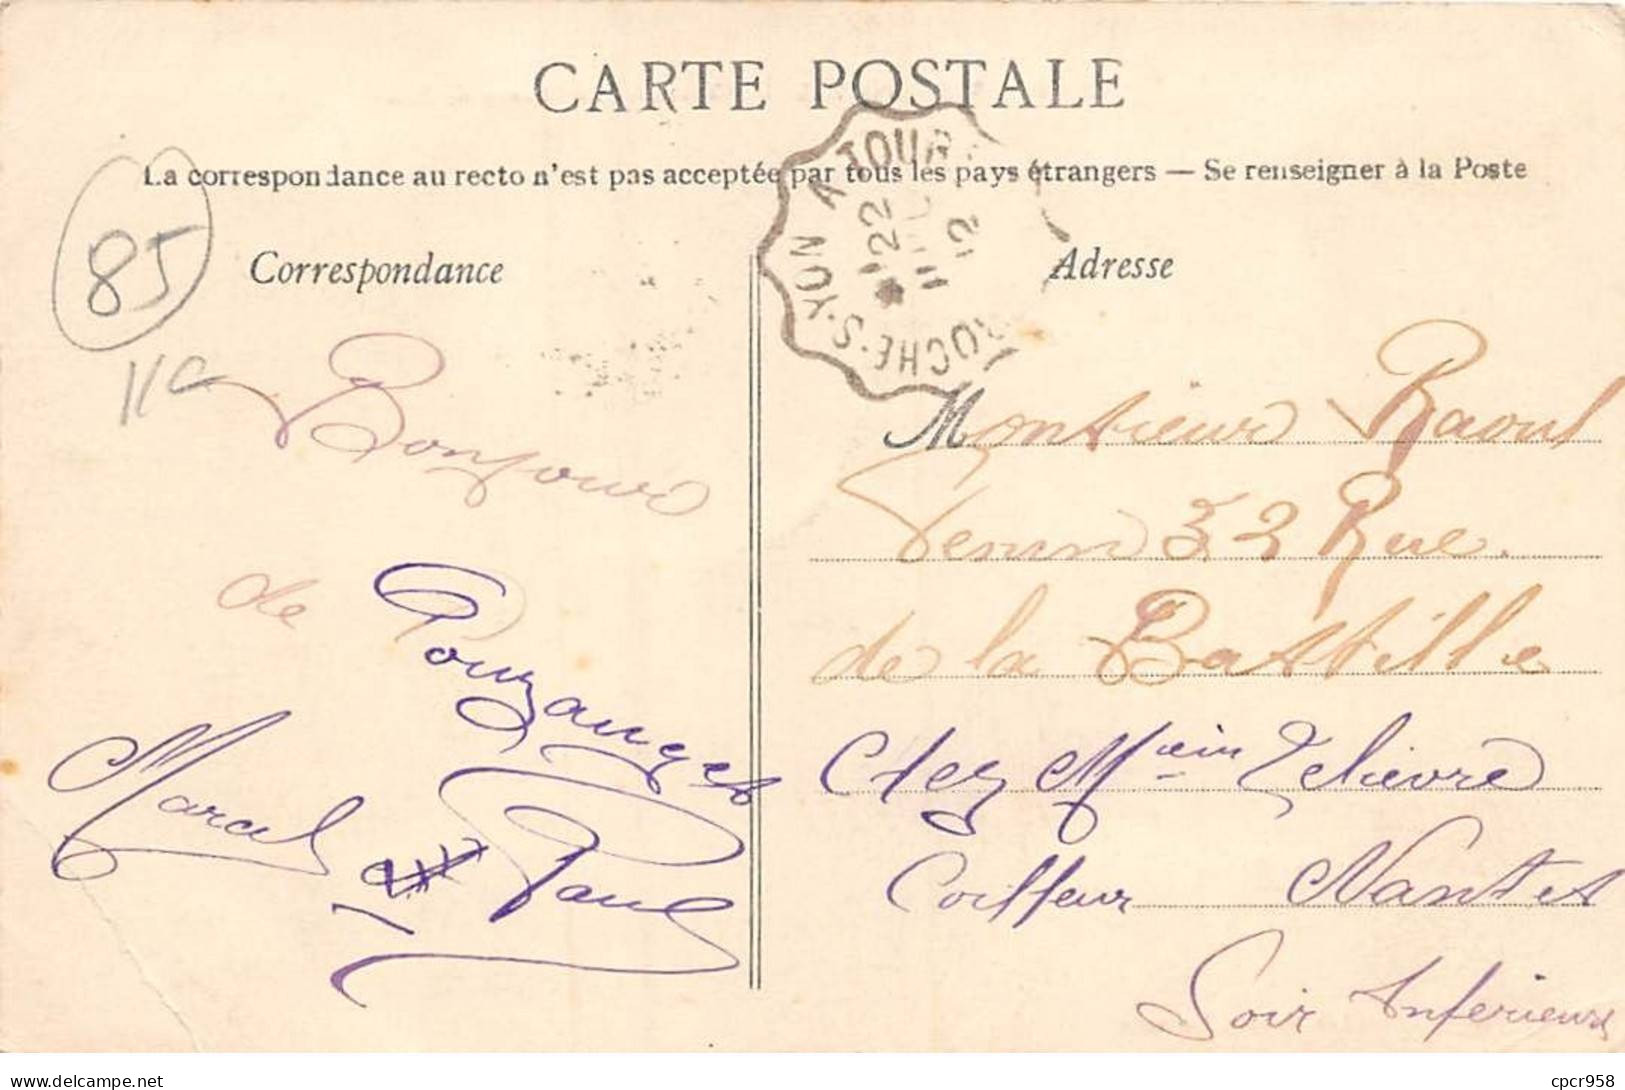 CARTE POSTALE
La correspondance au recto n'est pas acceptée par tous les pays étrangers — Se renseigner à la Poste
Correspondance
Adresse
85
YON A TOUR
22
12
OCHE-S-YON
Bonjour
de Pouzauges
Marcel & Paul
Monsieur Raoul
33 Rue
de la Bastille
Chez Lelievre
Coiffeur Nantes
Loir Inferieure
delcampe.net
cpcr958